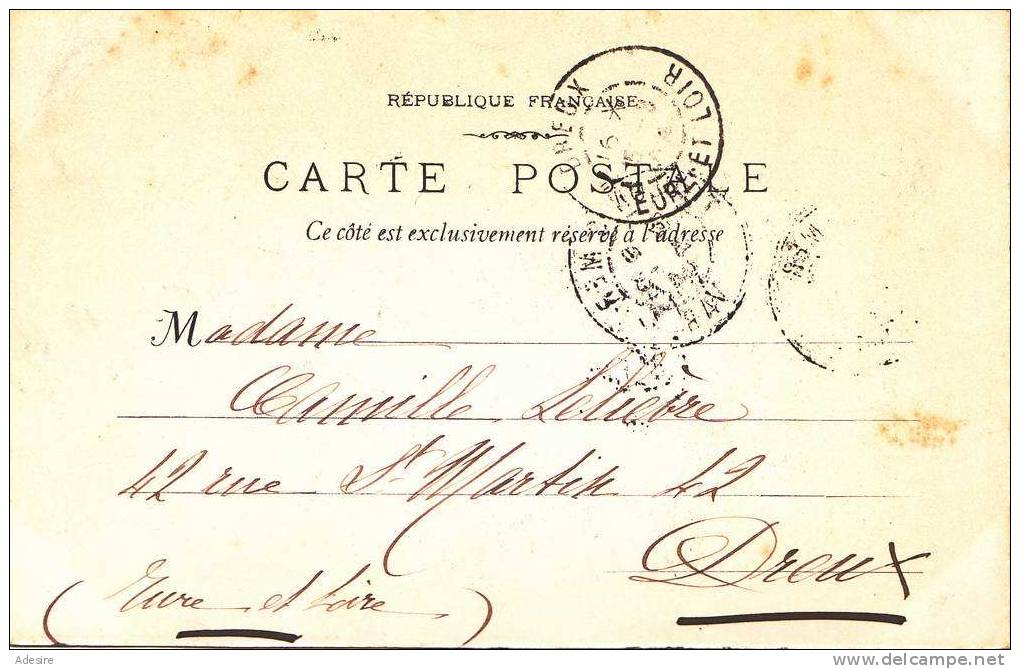 RÉPUBLIQUE FRANÇAISE
CARTE POSTALE
Ce côté est exclusivement réservé à l'adresse
EURE ET LOIR
Madame
Camille Lelièvre
42 rue St Martin 42
Dreux
(Eure et Loire)
Adesire
www.delcampe.net